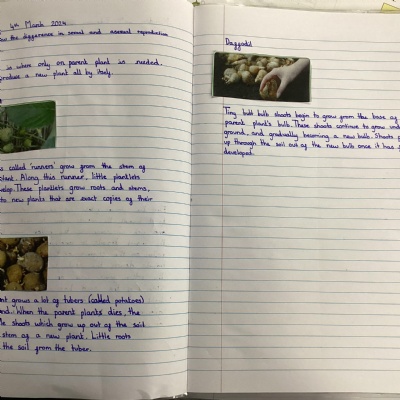 4th March 2024
the difference in sexual and asexual reproduction
is where only on parent plant is needed.
produce a new plant all by itself.
called 'runners' grow from the stem of
plant. Along this runner, little plantlets
develop. These plantlets grow roots and stems,
to new plants that are exact copies of their
grows a lot of tubers (called potatoes)
When the parent plants dies, the
shoots which grow up out of the soil
stem of a new plant. Little roots
the soil from the tuber.
Daffodil
Tiny bulb shoots begin to grow from the base of
parent plant's bulb. These shoots continue to grow
ground, and gradually becoming a new bulb. Shoots
up through the soil out of the new bulb once it has
developed.